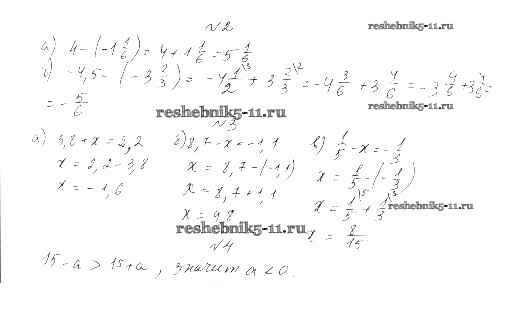 №2
reshebnik5-11.ru
а) 4-(-1 1/6) = 4+1 1/6 = 5 1/6
-4,5-(-3 2/3) = -4 1/2 + 3 2/3 = -4 3/6 + 3 4/6 =
= -5/6
reshebnik5-11.ru
reshebnik5-11.ru
№3
а) 3,8+x=2,2
x = 2,2-3,8
x = -1,6
б) 8,7-x=-1,1
x = 8,7-(-1,1)
x = 8,7+1,1
x = 9,8
в) 1/5-x=-1/3
x = 1/5-(-1/3)
x = 1/5+1/3
x = 8/15
reshebnik5-11.ru
reshebnik5-11.ru
№4
15-a > 15+a, значит a<0.